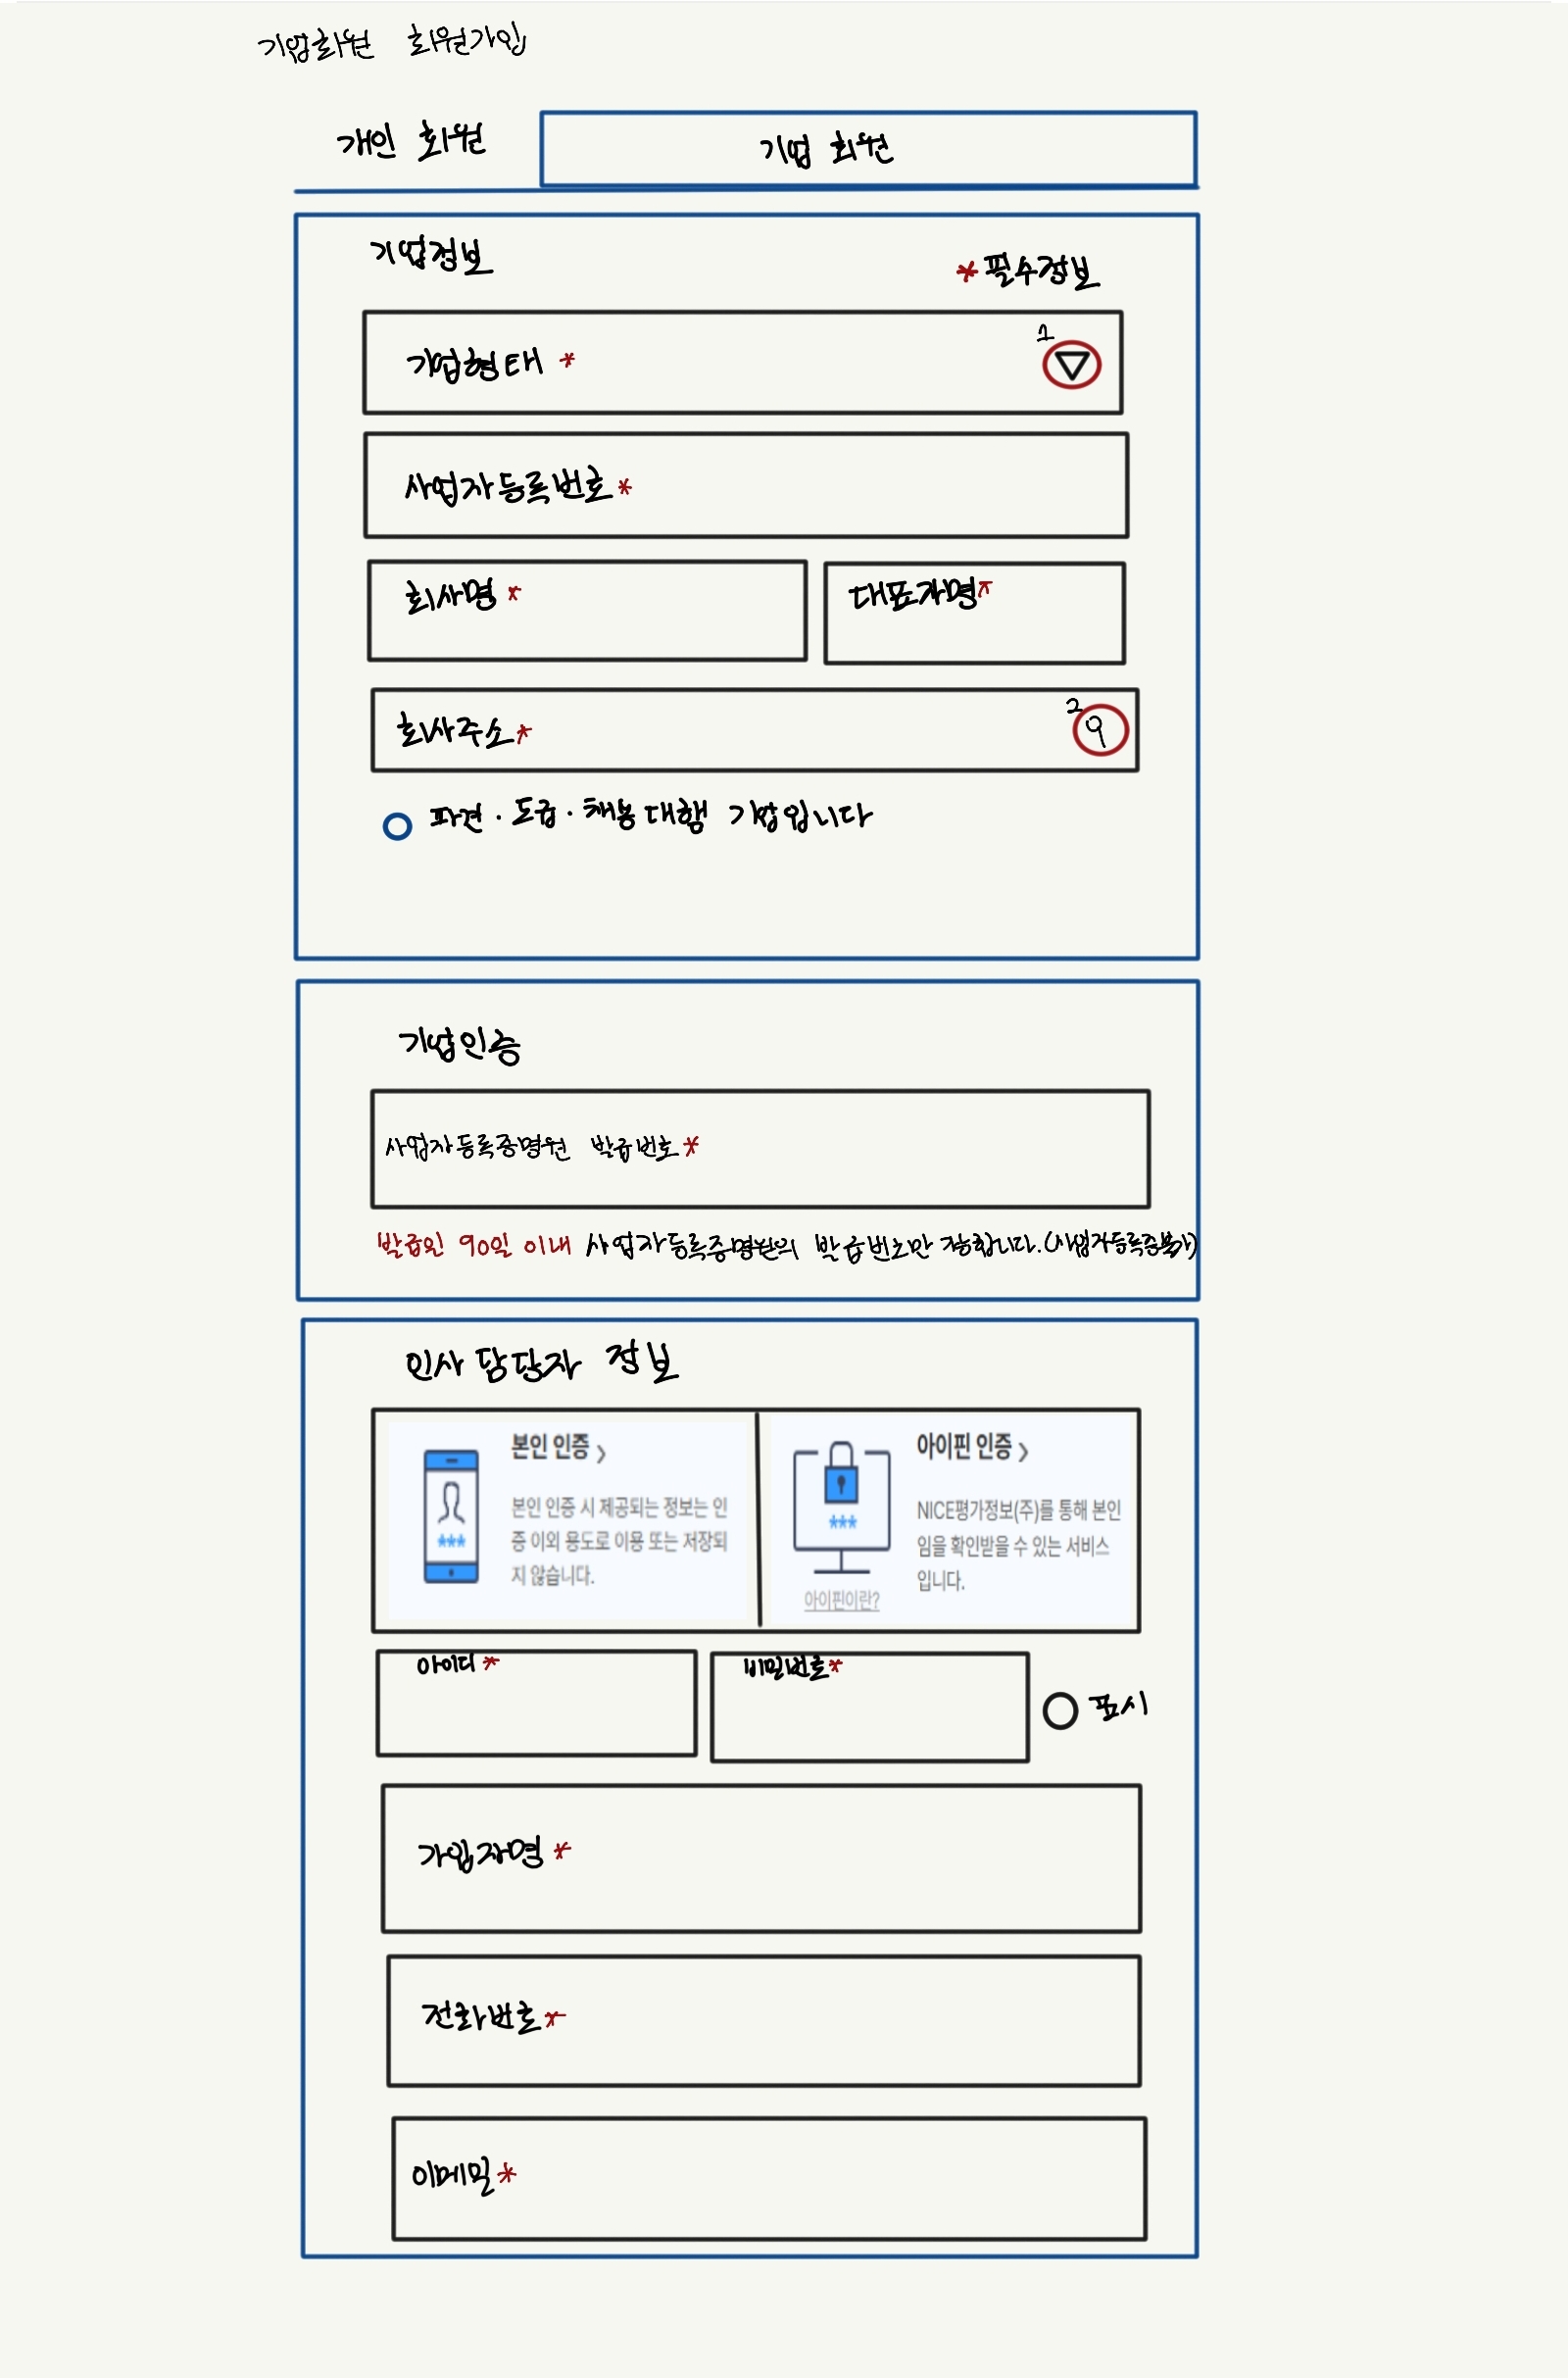 기업회원 회원가입
개인 회원 기업 회원
기업정보 *필수정보
기업형태 * 1
사업자등록번호*
회사명 * 대표자명*
회사주소* 2
파견·도급·채용대행 기업입니다
기업인증
사업자등록증명원 발급번호*
발급인 90일 이내 사업자등록증명원의 발급번호만 가능합니다.(사업자등록증불가)
인사 담당자 정보
본인 인증 >
본인 인증 시 제공되는 정보는 인
증 이외 용도로 이용 또는 저장되
지 않습니다.
***
아이핀 인증 >
NICE평가정보(주)를 통해 본인
임을 확인받을 수 있는 서비스
입니다.
***
아이핀이란?
아이디* 비밀번호* 표시
가입자명 *
전화번호*
이메일*